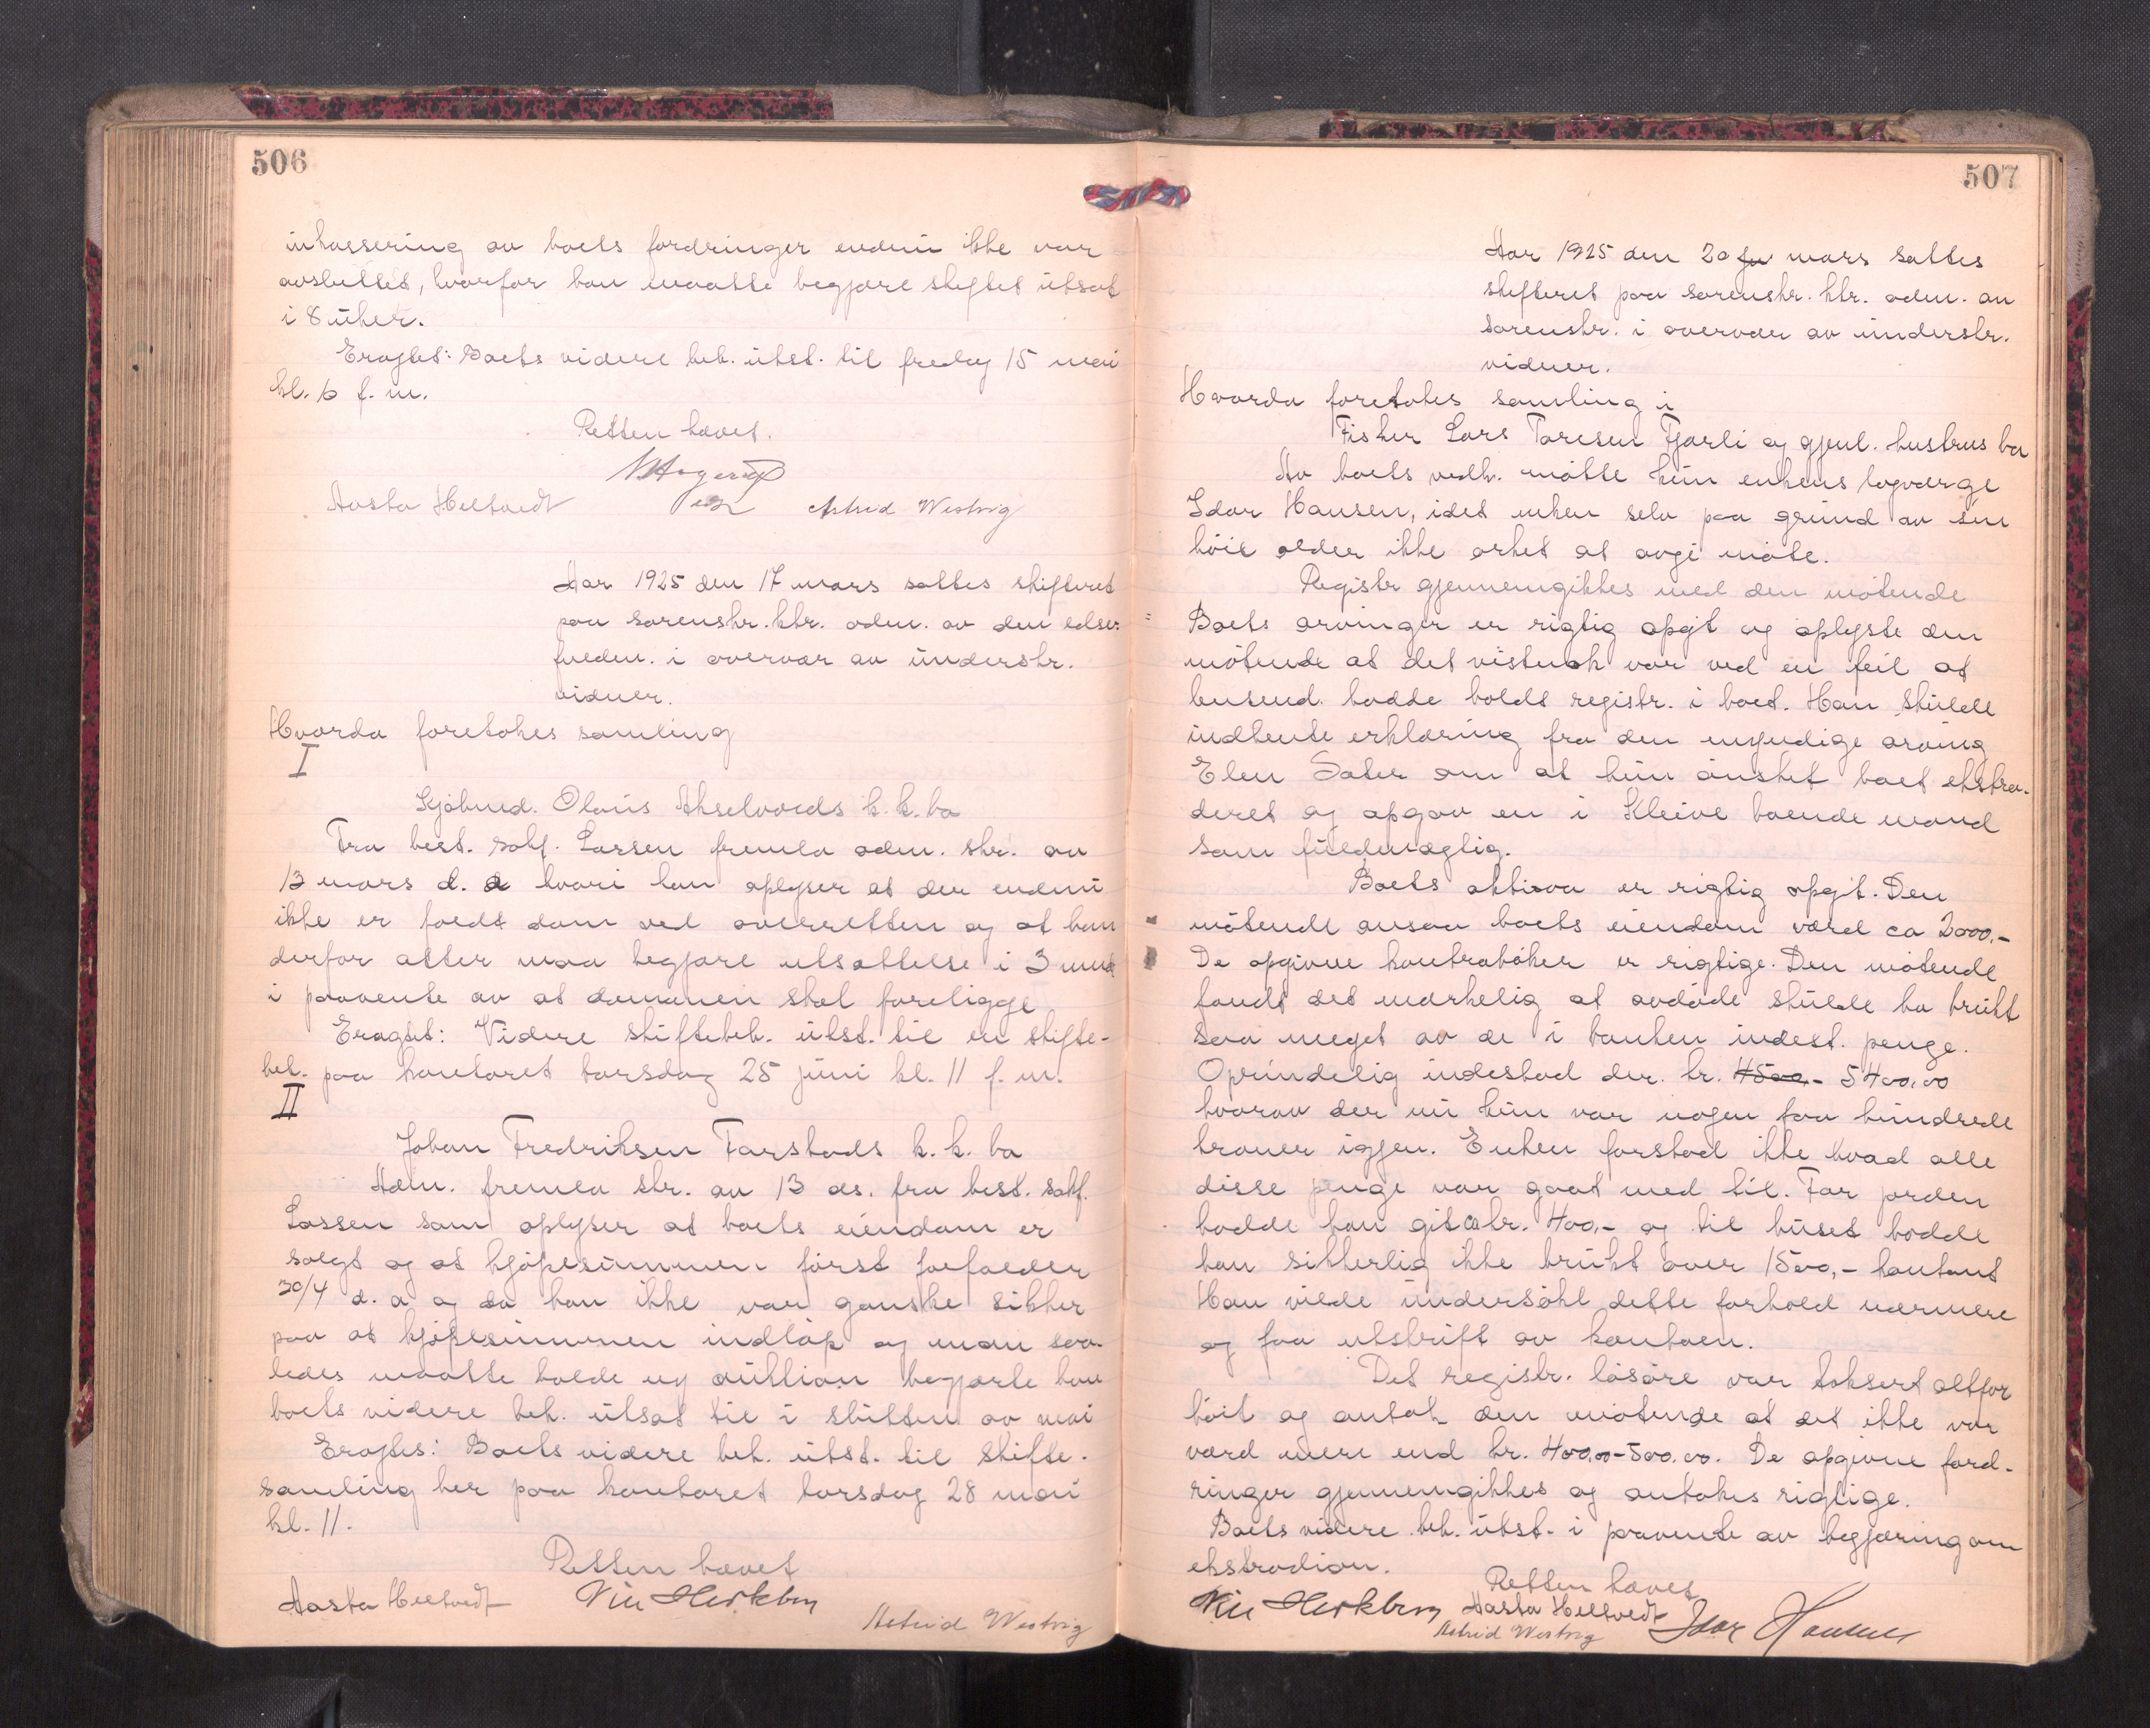 506
inkassering av boets fordringer endnu ikke var
avsluttet, hvorfor han maatte begjære skiftet utsat
i 8 uker.
Eragtet: Boets videre beh. utst. til fredag 15 mai
kl. 10 f. m.
Retten hævet.
Aasta Heltvedt Astrid Westvig
Aar 1925 den 17 mars sattes skifteret
paa sorenskr. ktr. adm. av den edsv.
fuldm. i overvær av underskr.
vidner.
Hvorda foretokes samling
I
Kjøbmd. Olaus Akselvolds k. k. bo
Fra best. sakf. Larsen fremla adm. skr. av
13 mars d. a hvori han oplyser at der endnu
ikke er faldt dom ved overretten og at han
derfor atter maa begjære utsættelse i 3 mndr
i paavente av at dommen skal foreligge
Eragtet: Videre skiftebeh. utst. til en skifte-
beh. paa kontoret torsdag 25 juni kl. 11 f. m.
II
Johan Fredriksen Farstads k. k. bo
Adm. fremla skr. av 13 ds. fra best. sakf.
Larsen som oplyser at boets eiendom er
solgt og at kjøpesummen først forfalder
30/4 d. a og da han ikke var ganske sikker
paa at kjøpesummen indløp og man saa-
ledes maatte holde ny auktion begjærte han
boets videre beh. utsat til i slutten av mai
Eragtes: Boets videre beh. utst. til skifte-
samling her paa kontoret torsdag 28 mai
kl. 11.
Retten hævet
Aasta Heltvedt Astrid Westvig
507
Aar 1925 den 20 mars sattes
skifteret paa sorenskr. ktr. adm. av
sorenskr. i overvær av underskr.
vidner.
Hvorda foretokes samling i
Fisker Lars Toresen Fjærli og gjenl. hustrus bo
Av boets vedk. møtte kun enkens lagværge
Idar Hansen, idet enken selv paa grund av sin
høie alder ikke orket at avgi møte.
Registr gjennemgikkes med den møtende
Boets arvinger er rigtig opgit og oplyste den
møtende at det vistnok var ved en feil at
lensmd. hadde holdt registr. i boet. Han skulde
indhente erklæring fra den myndige arving
Elen Sæter om at hun ønsket boet ekstra-
deret og opgav en i Kleive boende mand
som fuldmægtig.
Boets aktiva er rigtig opgit. Den
møtende ansaa boets eiendom værd ca 2000,-
De opgivne kontrabøker er rigtige. Den møtende
fandt det merkelig at avdøde skulde ha brukt
saa meget av de i banken indest. penge.
Oprindelig indestod der kr. 4500,- 5400,00
hvorav der nu kun var nogen faa hundrede
kroner igjen. Enken forstod ikke hvad alle
disse penge var gaat med til. For jorden
hadde han git ca kr. 400,- og til huset hadde
han sikkerlig ikke brukt over 1500,- kontant
Han vilde undersøke dette forhold nærmere
og faa utskrift av kontoen.
Det registr. løsøre var taksert altfor
høit og antok den møtende at det ikke var
værd mere end kr. 400,00-500,00. De opgivne ford-
ringer gjennemgikkes og antokes rigtige.
Boets videre beh. utst. i paavente av begjæring om
ekstradion.
Retten hævet
Aasta Heltvedt Idar Hansen
Astrid Westvig